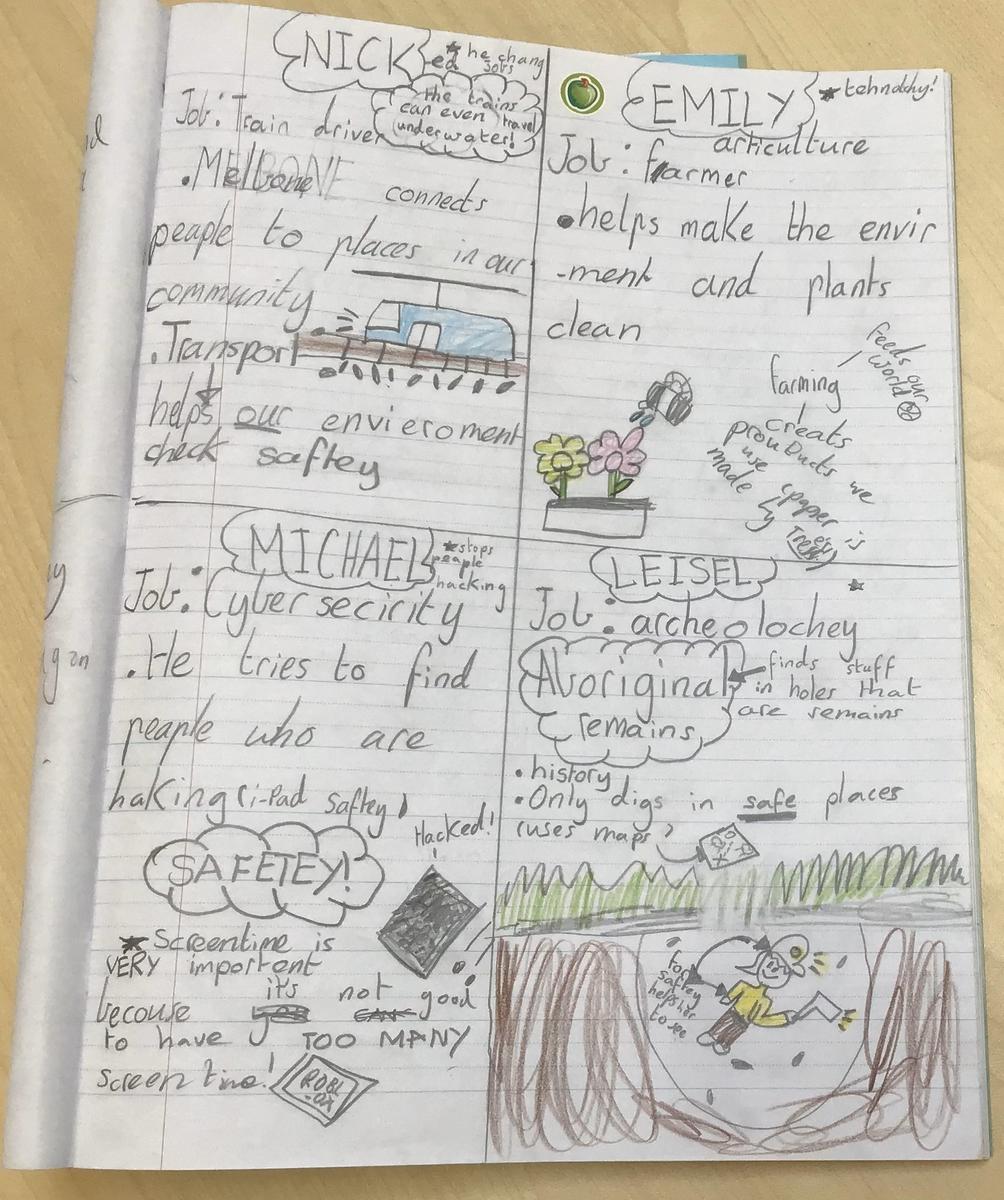 NICK
★ he chang
ed jobs
Job: Train driver
the trains
can even travel
underwater!
. Melbone connects
peaple to places in our
community
. Transport
helps our envieroment
check saftey
EMILY
★ tehnolohy!
articulture
Job: farmer
• helps make the envir
-ment and plants
clean
farming
feeds our
world
creats
prouducts we
use (paper is
made by trees)
MICHAEL
★ stops
people
hacking
Job: Cyber secirity
. He tries to find
peaple who are
haking (i-Pad saftey)
SAFETEY!
Hacked!
★ Screentime is
VERY important
becouse it's not good
to have TOO MANY
screen time!
ROBL
-OX
LEISEL
★
Job: archeolochey
Aboriginal
remains
finds stuff
in holes that
are remains
• history
• Only digs in safe places
(uses maps)
for
saftey
helps her
to see
gon